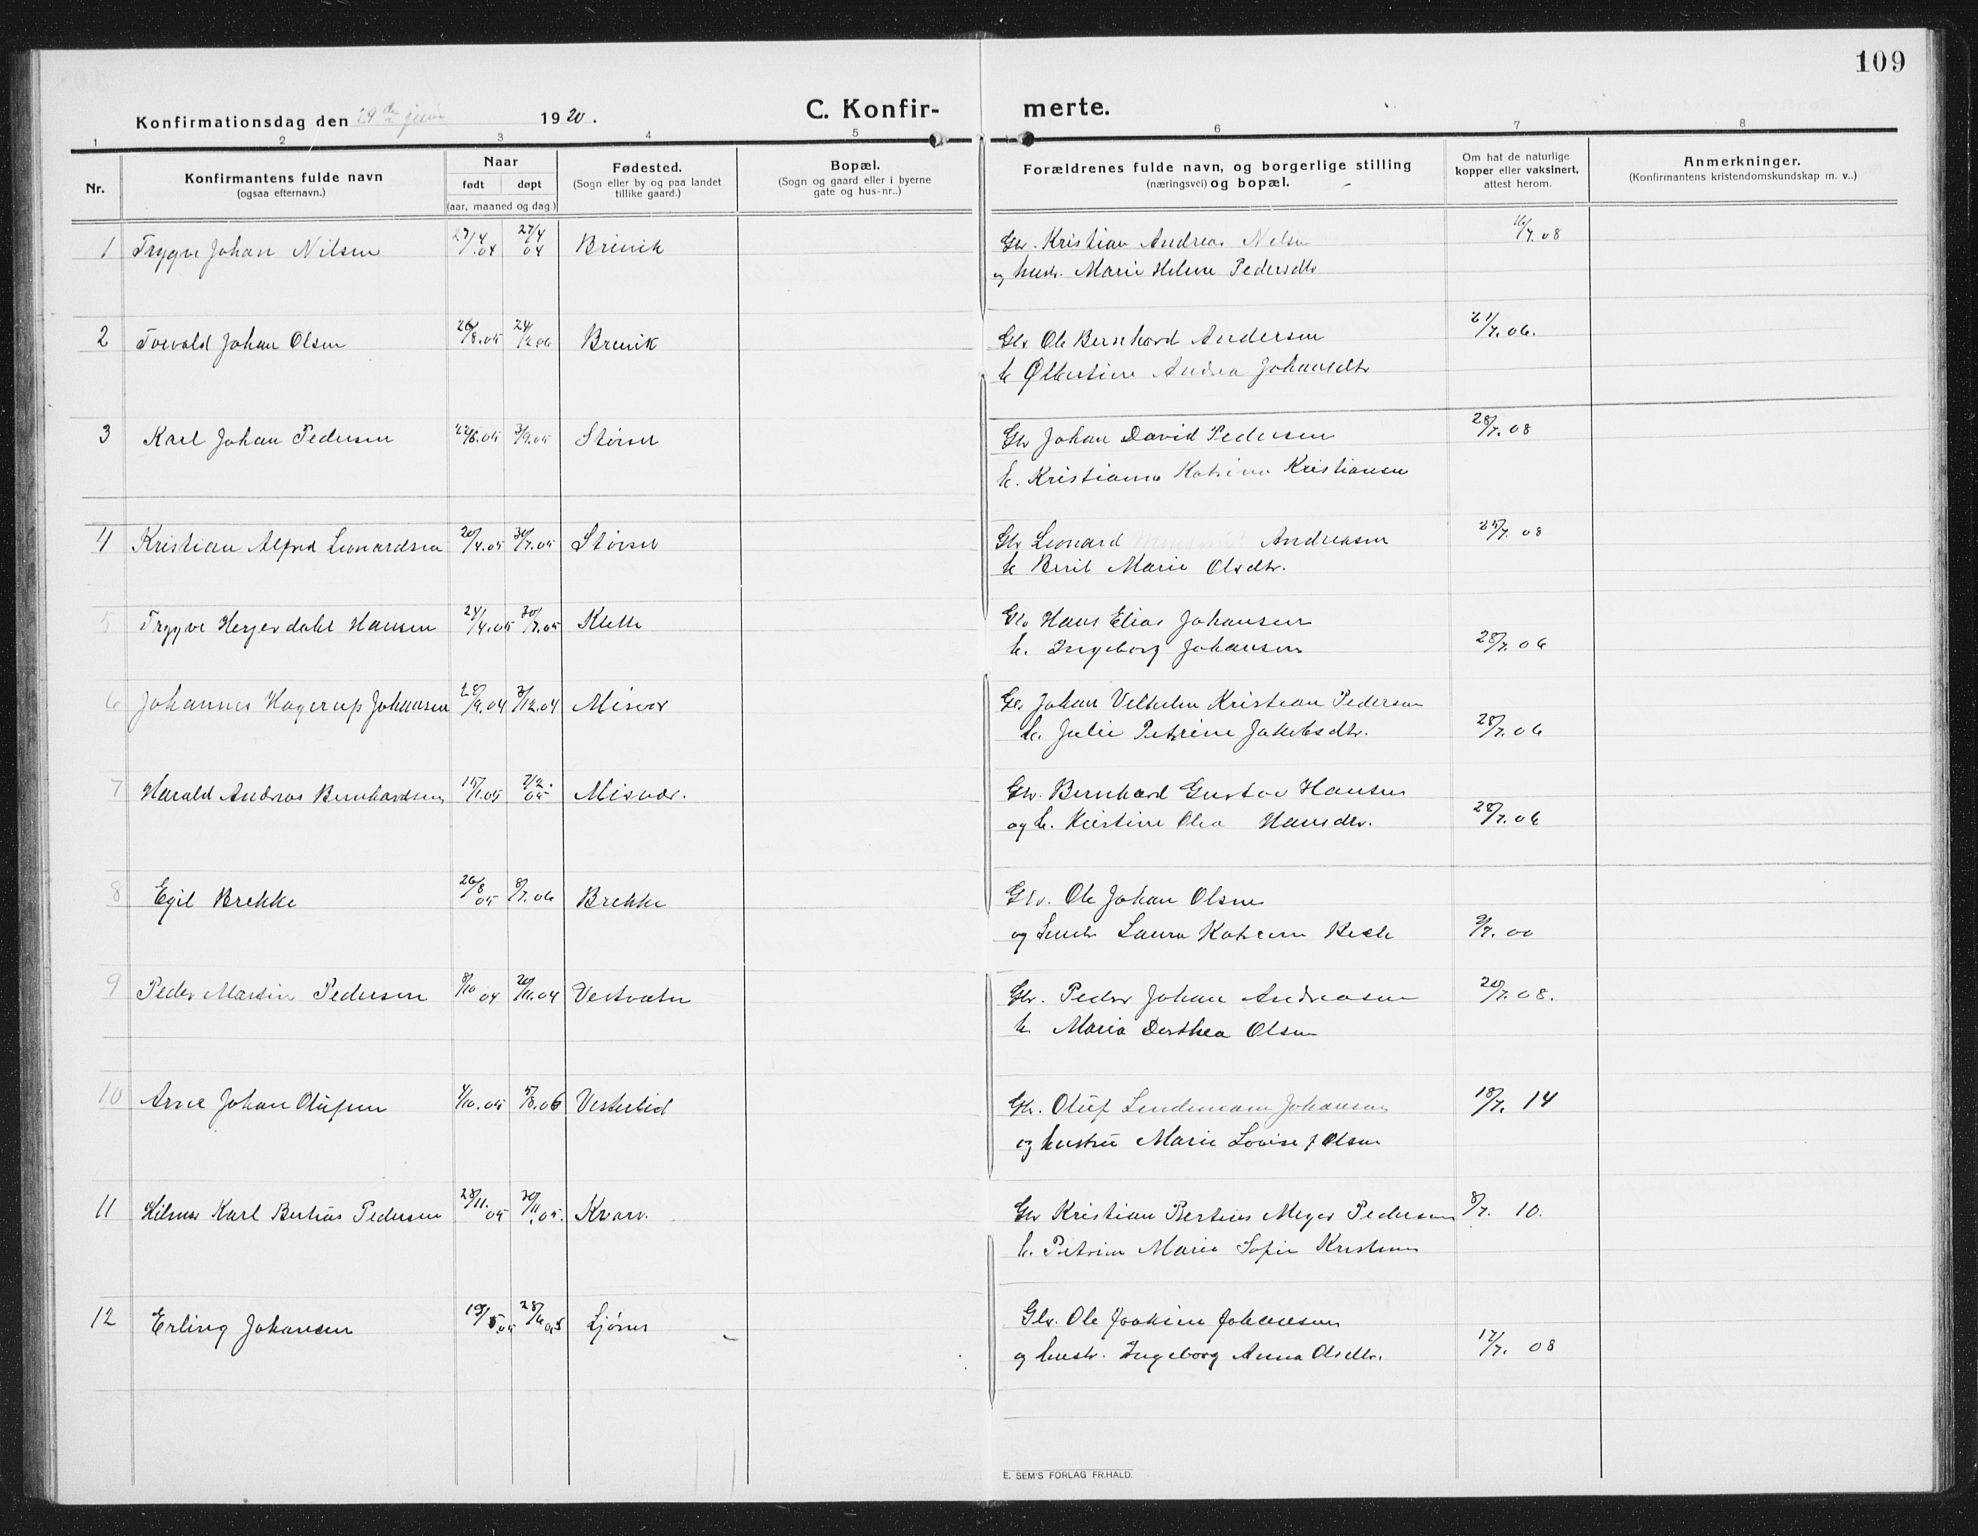 109
Konfirmationsdag den 29de juni 1920.
C. Konfirmerte.
1 2 3 4 5 6 7 8
Nr.
Konfirmantens fulde navn
(ogsaa efternavn.)
Naar
født døpt
(aar, maaned og dag.)
Fødested.
(Sogn eller by og paa landet
tillike gaard.)
Bopæl.
(Sogn og gaard eller i byerne
gate og hus-nr..)
Forældrenes fulde navn, og borgerlige stilling
(næringsvei) og bopæl.
Om hat de naturlige
kopper eller vaksinert,
attest herom.
Anmerkninger.
(Konfirmantens kristendomskundskap m. v..)
1 Trygve Johan Nilsen 27/4.04 27/4 04 Brevik Gbr. Kristian Andreas Nilsen 16/7.08
og hustr. Marie Helene Pedersdtr
2 Torvald Johan Olsen 26/8.05 24/2.06 Brevik Gbr Ole Bernhard Andersen 21/7.06.
h Olbertine Andrea Johansdtr
3 Karl Johan Pedersen 22/6.05 3/9.05 Størset Gbr Johan David Pedersen 28/7.08
h. Kristianna Katrina Kristiansen
4 Kristian Alfred Leonardsen 20/4.05 30/7.05 Størset Gbr Leonard Andreasen 25/7.08
h Berit Marie Olsdtr.
5 Trygve Herjerdahl Hansen 24/4.05 30/7.05 Klette Gbr Hans Elias Johansen
h. Ingeborg Johansen 28/7.06
6 Johannes Hagerup Johansen 28/9.04 3/12.04 Misvær Gbr Johan Velhelm Kristian Pedersen
h. Julie Petrine Jakobsdtr. 28/7.06
7 Harald Andreas Bernhardsen 15/1.05 2/2.05 Misvær. Gbr. Bernhard Gustav Hansen
og h. Kirstine Olea Hansdtr. 28/7.06
8 Egil Brekke 26/8 05 8/7.06 Brekke Gbr. Ole Johan Olsen
og hustr Laura Katrine 9/7.00
9 Peder Martin Pedersen 8/10 04 20/11.04 Vestvatn Gbr. Peder Johan Andreasen 20/7.08.
h. Maria Dorthea Olsen
10 Arne Johan Olufsen 4/10.05 5/8.06 Vesterlid Gbr. Oluf Lindemann Johansen 18/7.14
og hustru Marie Lovise J Olsen
11 Hilmar Karl Bertius Pedersen 28/11.05 30/11.05. Kvarv. Gbr Kristian Bertius Meyer Pedersen 8/7. 10.
h. Petrine Marie Sofie Kristensen
12 Erling Johansen 19/5.05 28/6 05 Ljønes Gbr. Ole Joakim Johansen
og hustr. Ingeborg Anna Olsdtr. 17/7. 08
E. SEM'S FORLAG FR.HALD.